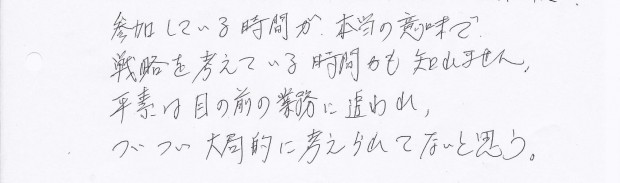 参加している時間が、本当の意味で
戦略を考えている時間かも知れません。
平素は目の前の業務に追われ、
ついつい大局的に考えられてないと思う。